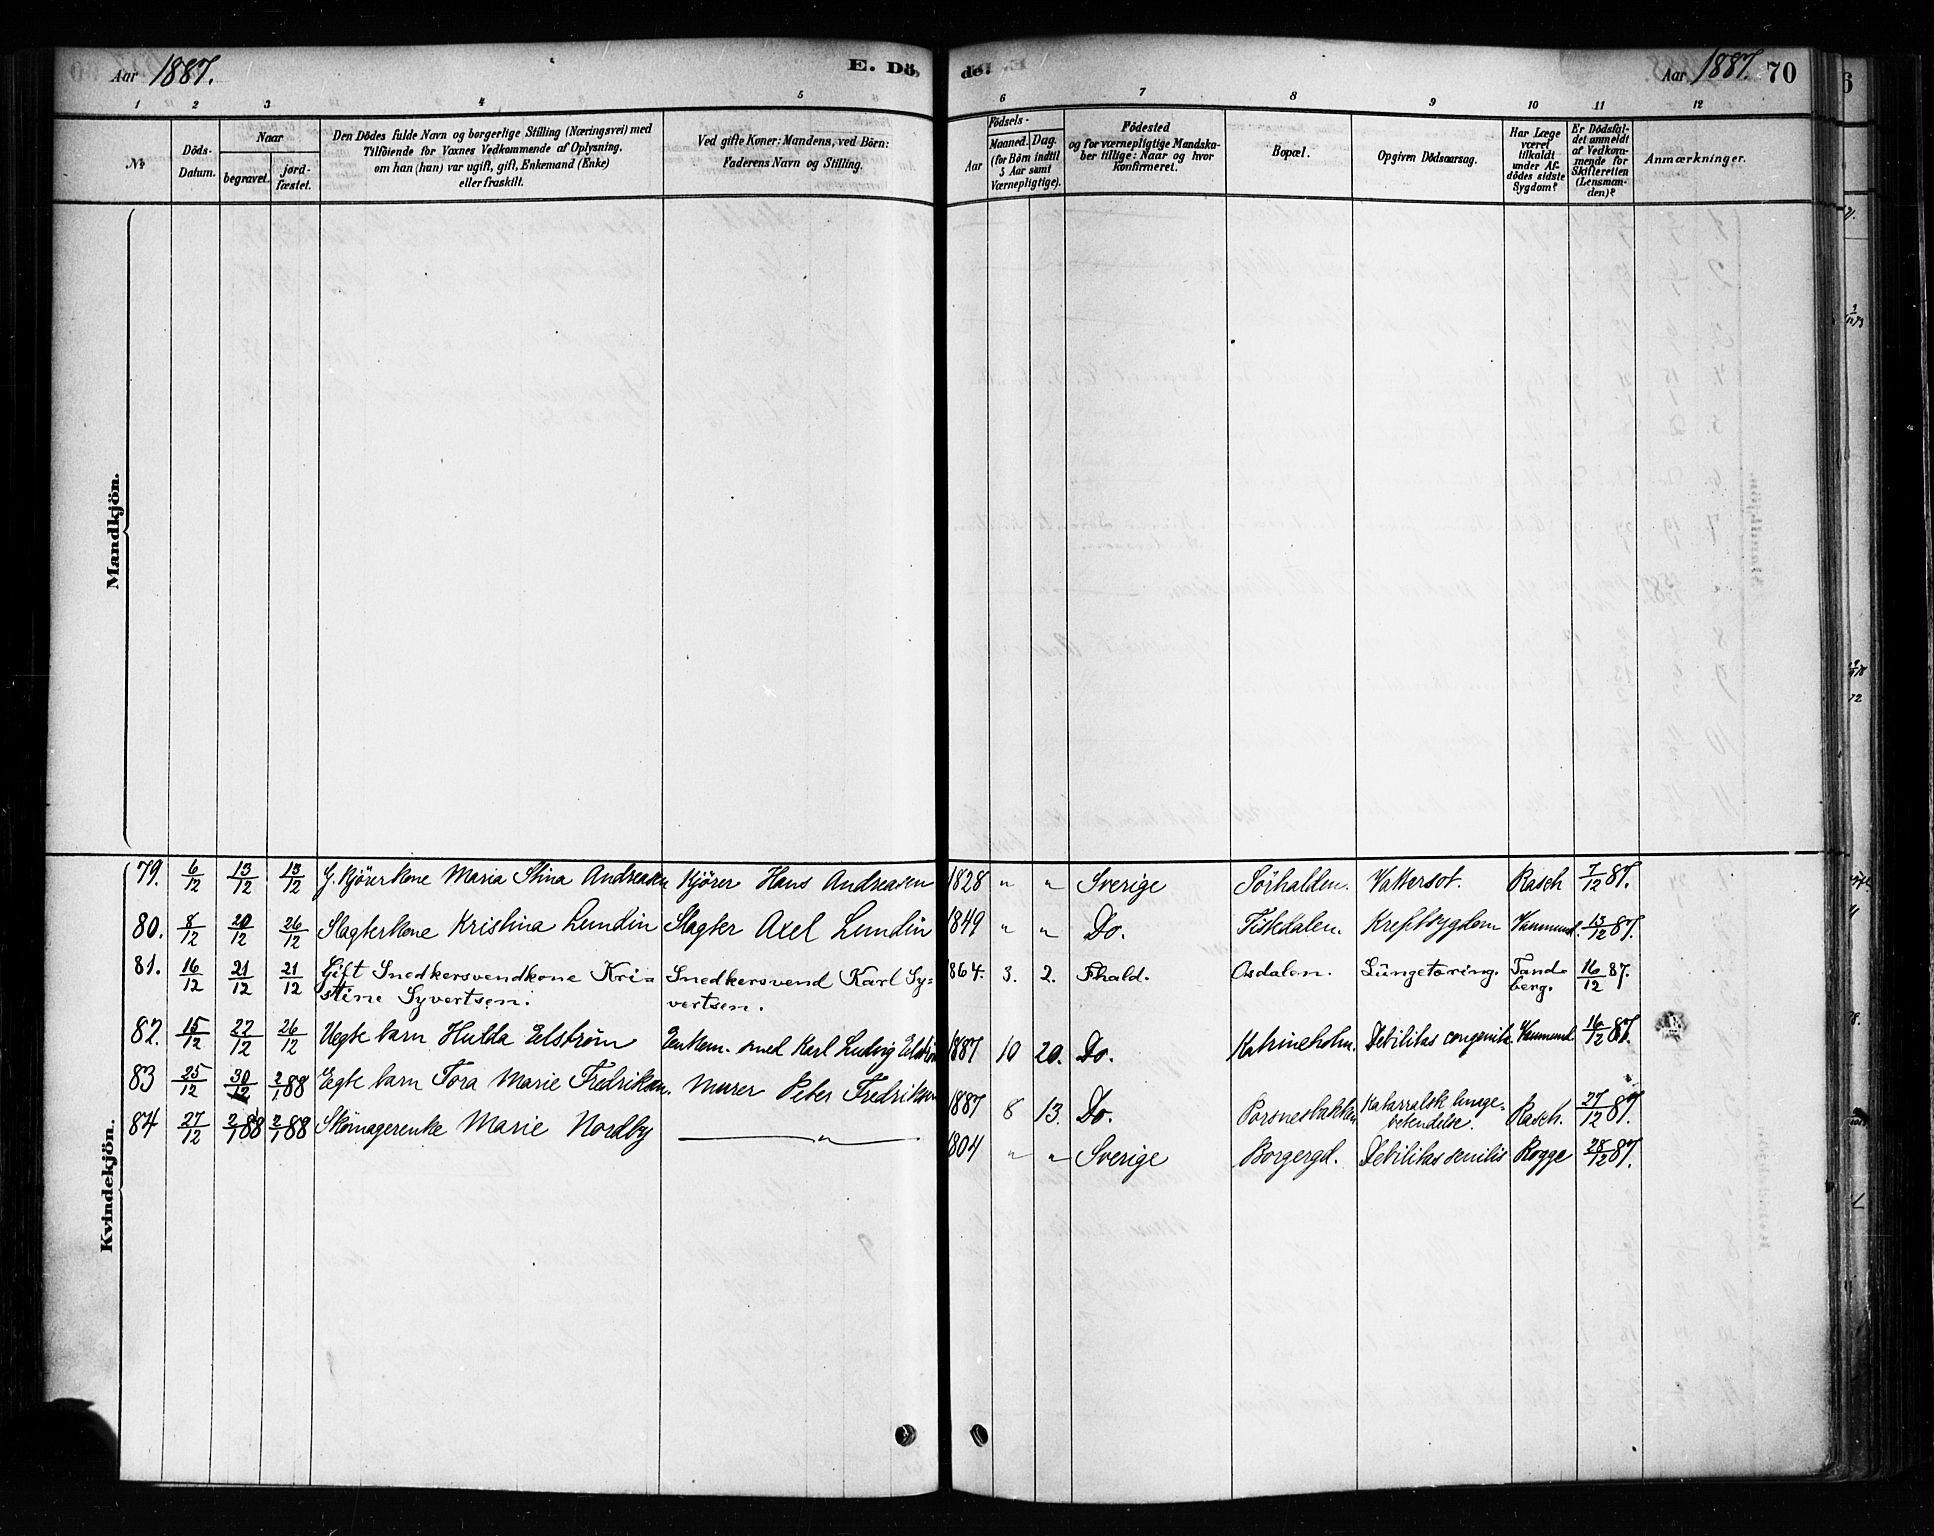 Aar 1887.
E. Dö.
de.
Aar 1887. 70
1 2 3 4 5 6 7 8 9 10 11 12
No
Döds-
Datum.
Naar
begravet.
jord-
fæstet.
Den Dödes fulde Navn og borgerlige Stilling (Næringsvei) med
Tilföiende for Voxnes Vedkommende af Oplysning,
om han (hun) var ugift, gift, Enkemand (Enke)
eller fraskilt.
Ved gifte Koner: Mandens, ved Börn:
Faderens Navn og Stilling.
Födsels-
Aar
Maaned.
Dag.
(for Börn indtil
5 Aar samt
Værnepligtige).
Födested
og for værnepligtige Mandska-
ber tillige: Naar og hvor
konfirmeret.
Bopæl.
Opgiven Dödsaarsag.
Har Læge
været
tilkaldt
under Af-
dödes sidste
Sygdom?
Er Dödsfal-
det anmeldt
af Vedkom-
mende for
Skifteretten
(Lensman-
den)?
Anmærkninger.
Mandkjön.
Kvindekjön.
79. 6/12 13/12 13/12 G. Kjörerkone Maria Stina Andreasen Kjörer Hans Andreasen 1828 " " Sverige Sörhalden. Vattersot. Rasch 7/12 87.
80. 8/12 20/12 26/12 Slagterkone Kristina Lundin Slagter Axel Lundin 1849 " " Do. Fiskdalen. Kreftsygdom 13/12 87.
81. 16/12 21/12 21/12 Gift Snedkersvendkone Kri-
stine Syvertsen. Snedkersvend Karl Sy-
vertsen. 1864. 3. 2. Fhald. Asdalen. Lungetæring. Tand-
berg. 16/12 87.
82. 15/12 22/12 26/12 Uegte barn Hulda Elström Enkem. smed Karl Ludvig Elström 1887 10 20. Do. Katrineholm. Debilitas congenita 16/12 87.
83 25/12 30/12 2/1 88 Egte barn Tora Marie Fredriksen. Murer Peter Fredriksen 1887 8 13. Do. Porsnesbakken Katarralsk lunge-
betendelse. Rasch. 27/12 87.
84 27/12 2/1 88 2/1 88 Skömagerenke Marie Nordby — " — 1804 " " Sverige Borgergd. Debilitas senilis Rogge 28/12 87.